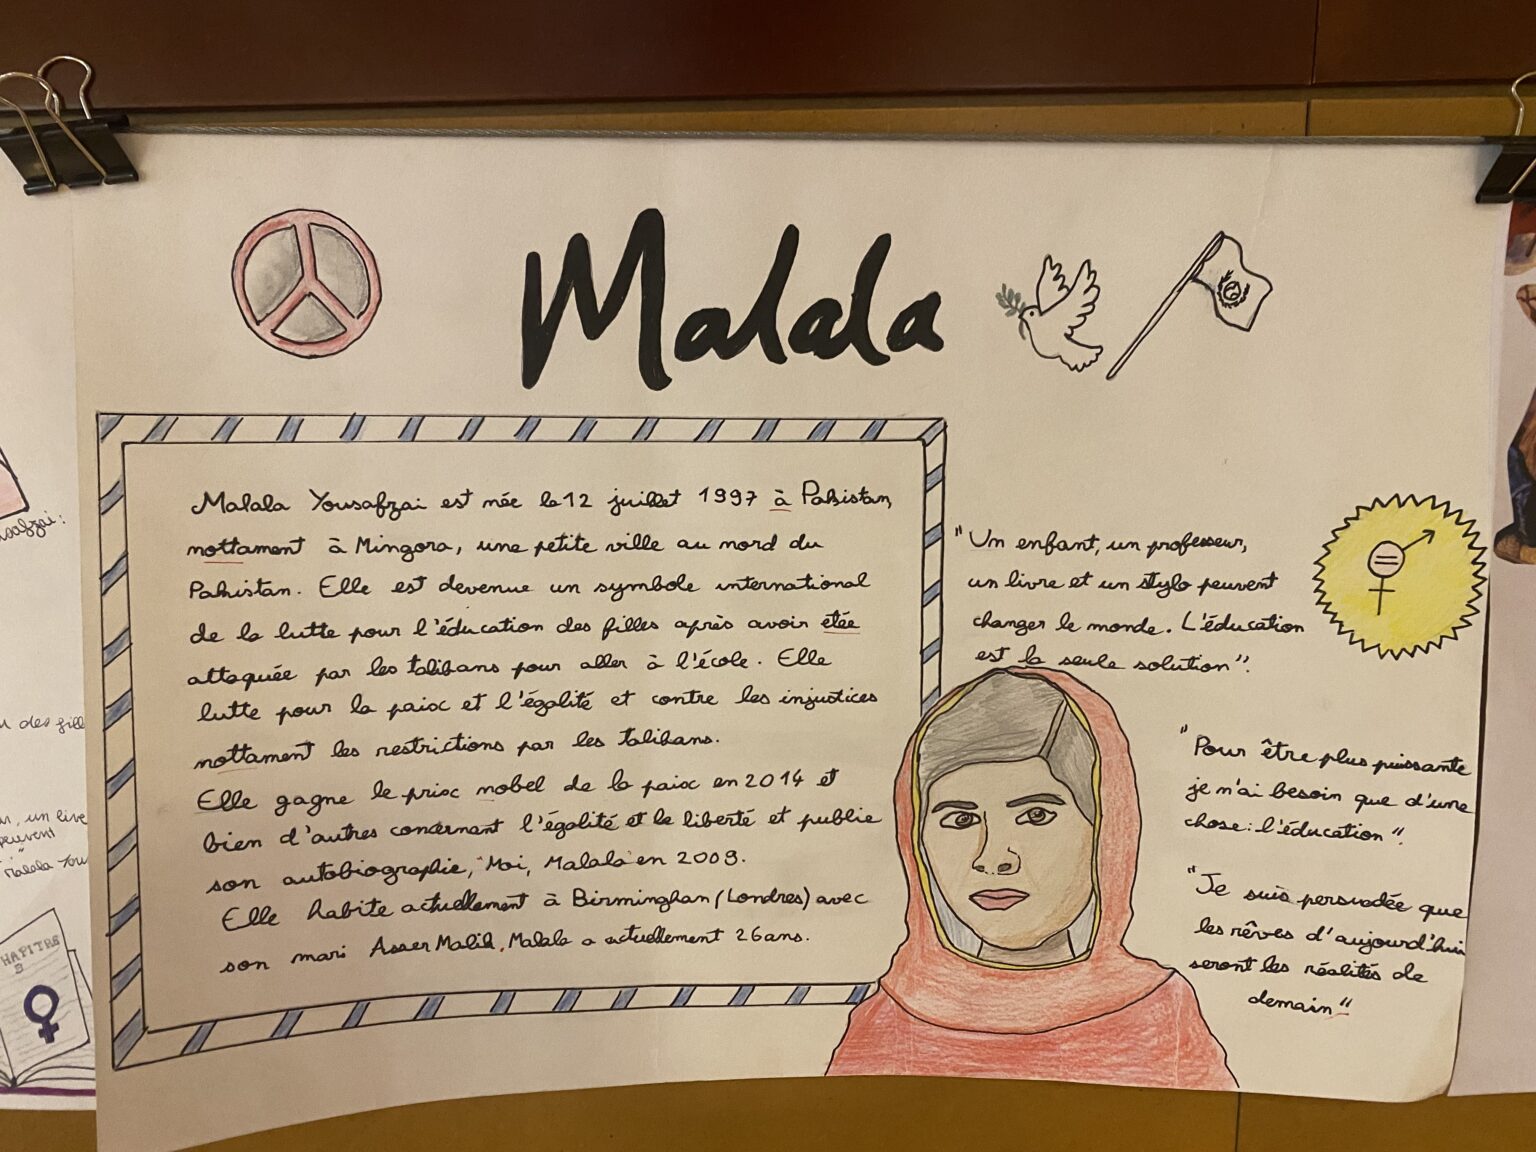 Malala
Malala Yousafzai est née le 12 juillet 1997 à Pakistan,
nottament à Mingora, une petite ville au nord du
Pakistan. Elle est devenue un symbole international
de la lutte pour l'éducation des filles après avoir étée
attaquée par les talibans pour aller à l'école. Elle
lutte pour la paix et l'égalité et contre les injustices
nottament les restrictions par les talibans.
Elle gagne le prix nobel de la paix en 2014 et
bien d'autres concernant l'égalité et la liberté et publie
son autobiographie, "Moi, Malala" en 2009.
Elle habite actuellement à Birminghan (Londres) avec
son mari Asser Malik. Malala a actuellement 26 ans.
"Un enfant, un professeur,
un livre et un stylo peuvent
changer le monde. L'éducation
est la seule solution".
"Pour être plus puissante
je n'ai besoin que d'une
chose: l'éducation".
"Je suis persuadée que
les rêves d'aujourd'hui
seront les réalités de
demain"
usafzai:
des fill
un live
peuvent
Malala You
CHAPITRE